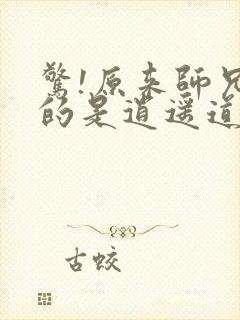 驚!原來師兄
的是逍遥道
古蛟